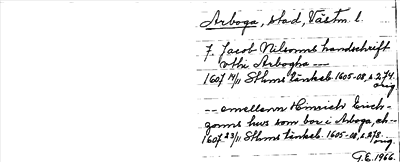 Arboga, stad, Västm. l.
7. Jacob Nilsonns handschrift
vthi Arbogha ---
1607 14/11 Sthms tänkeb. 1605-08, s 274.
orig.
-- emellann Hinrich Erich-
sonns hws som bor i Arboga, ah--
1607 23/11 Sthms tänkeb. 1605-08, s 278.
orig.
G.E. 1966.